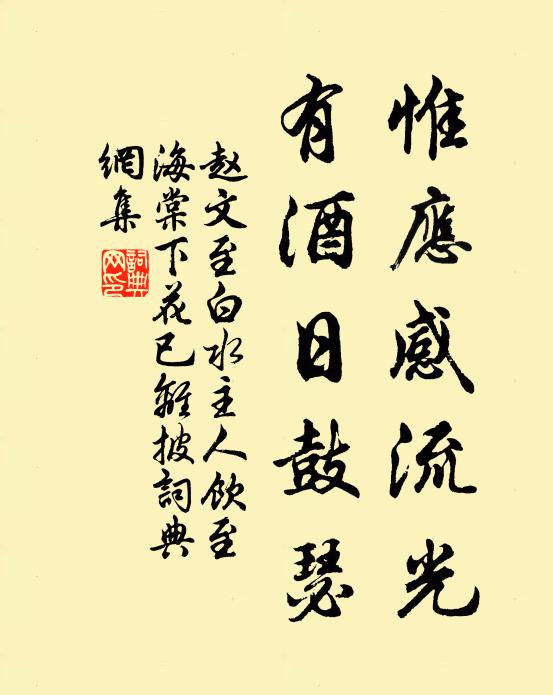 惟應感流光
有酒日鼓瑟
赵文至白水主人飲至
海棠下花已離披詞典
網集
詞典
网印